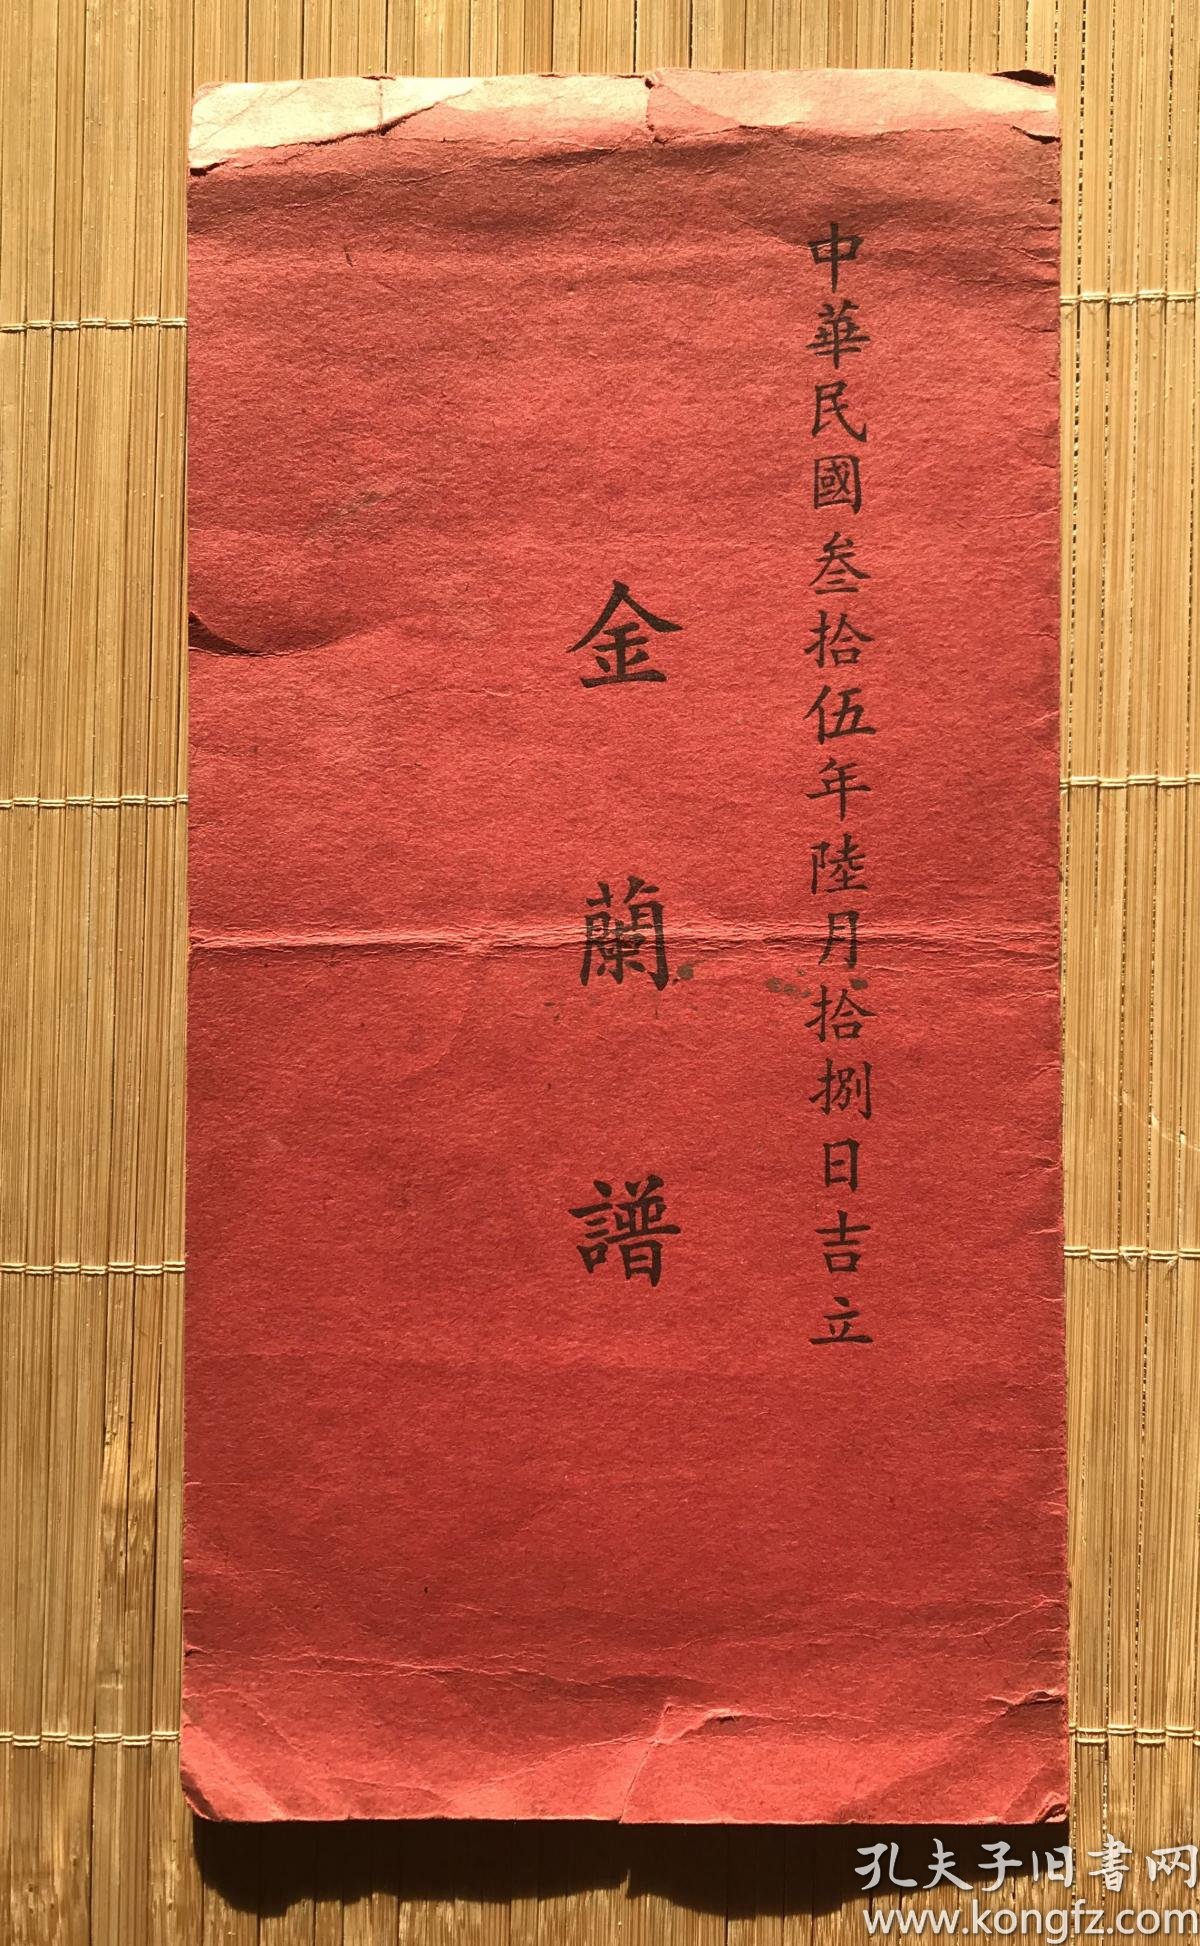 中華民國叁拾伍年陸月拾捌日吉立
金蘭譜
孔夫子旧書网
www.kongfz.com